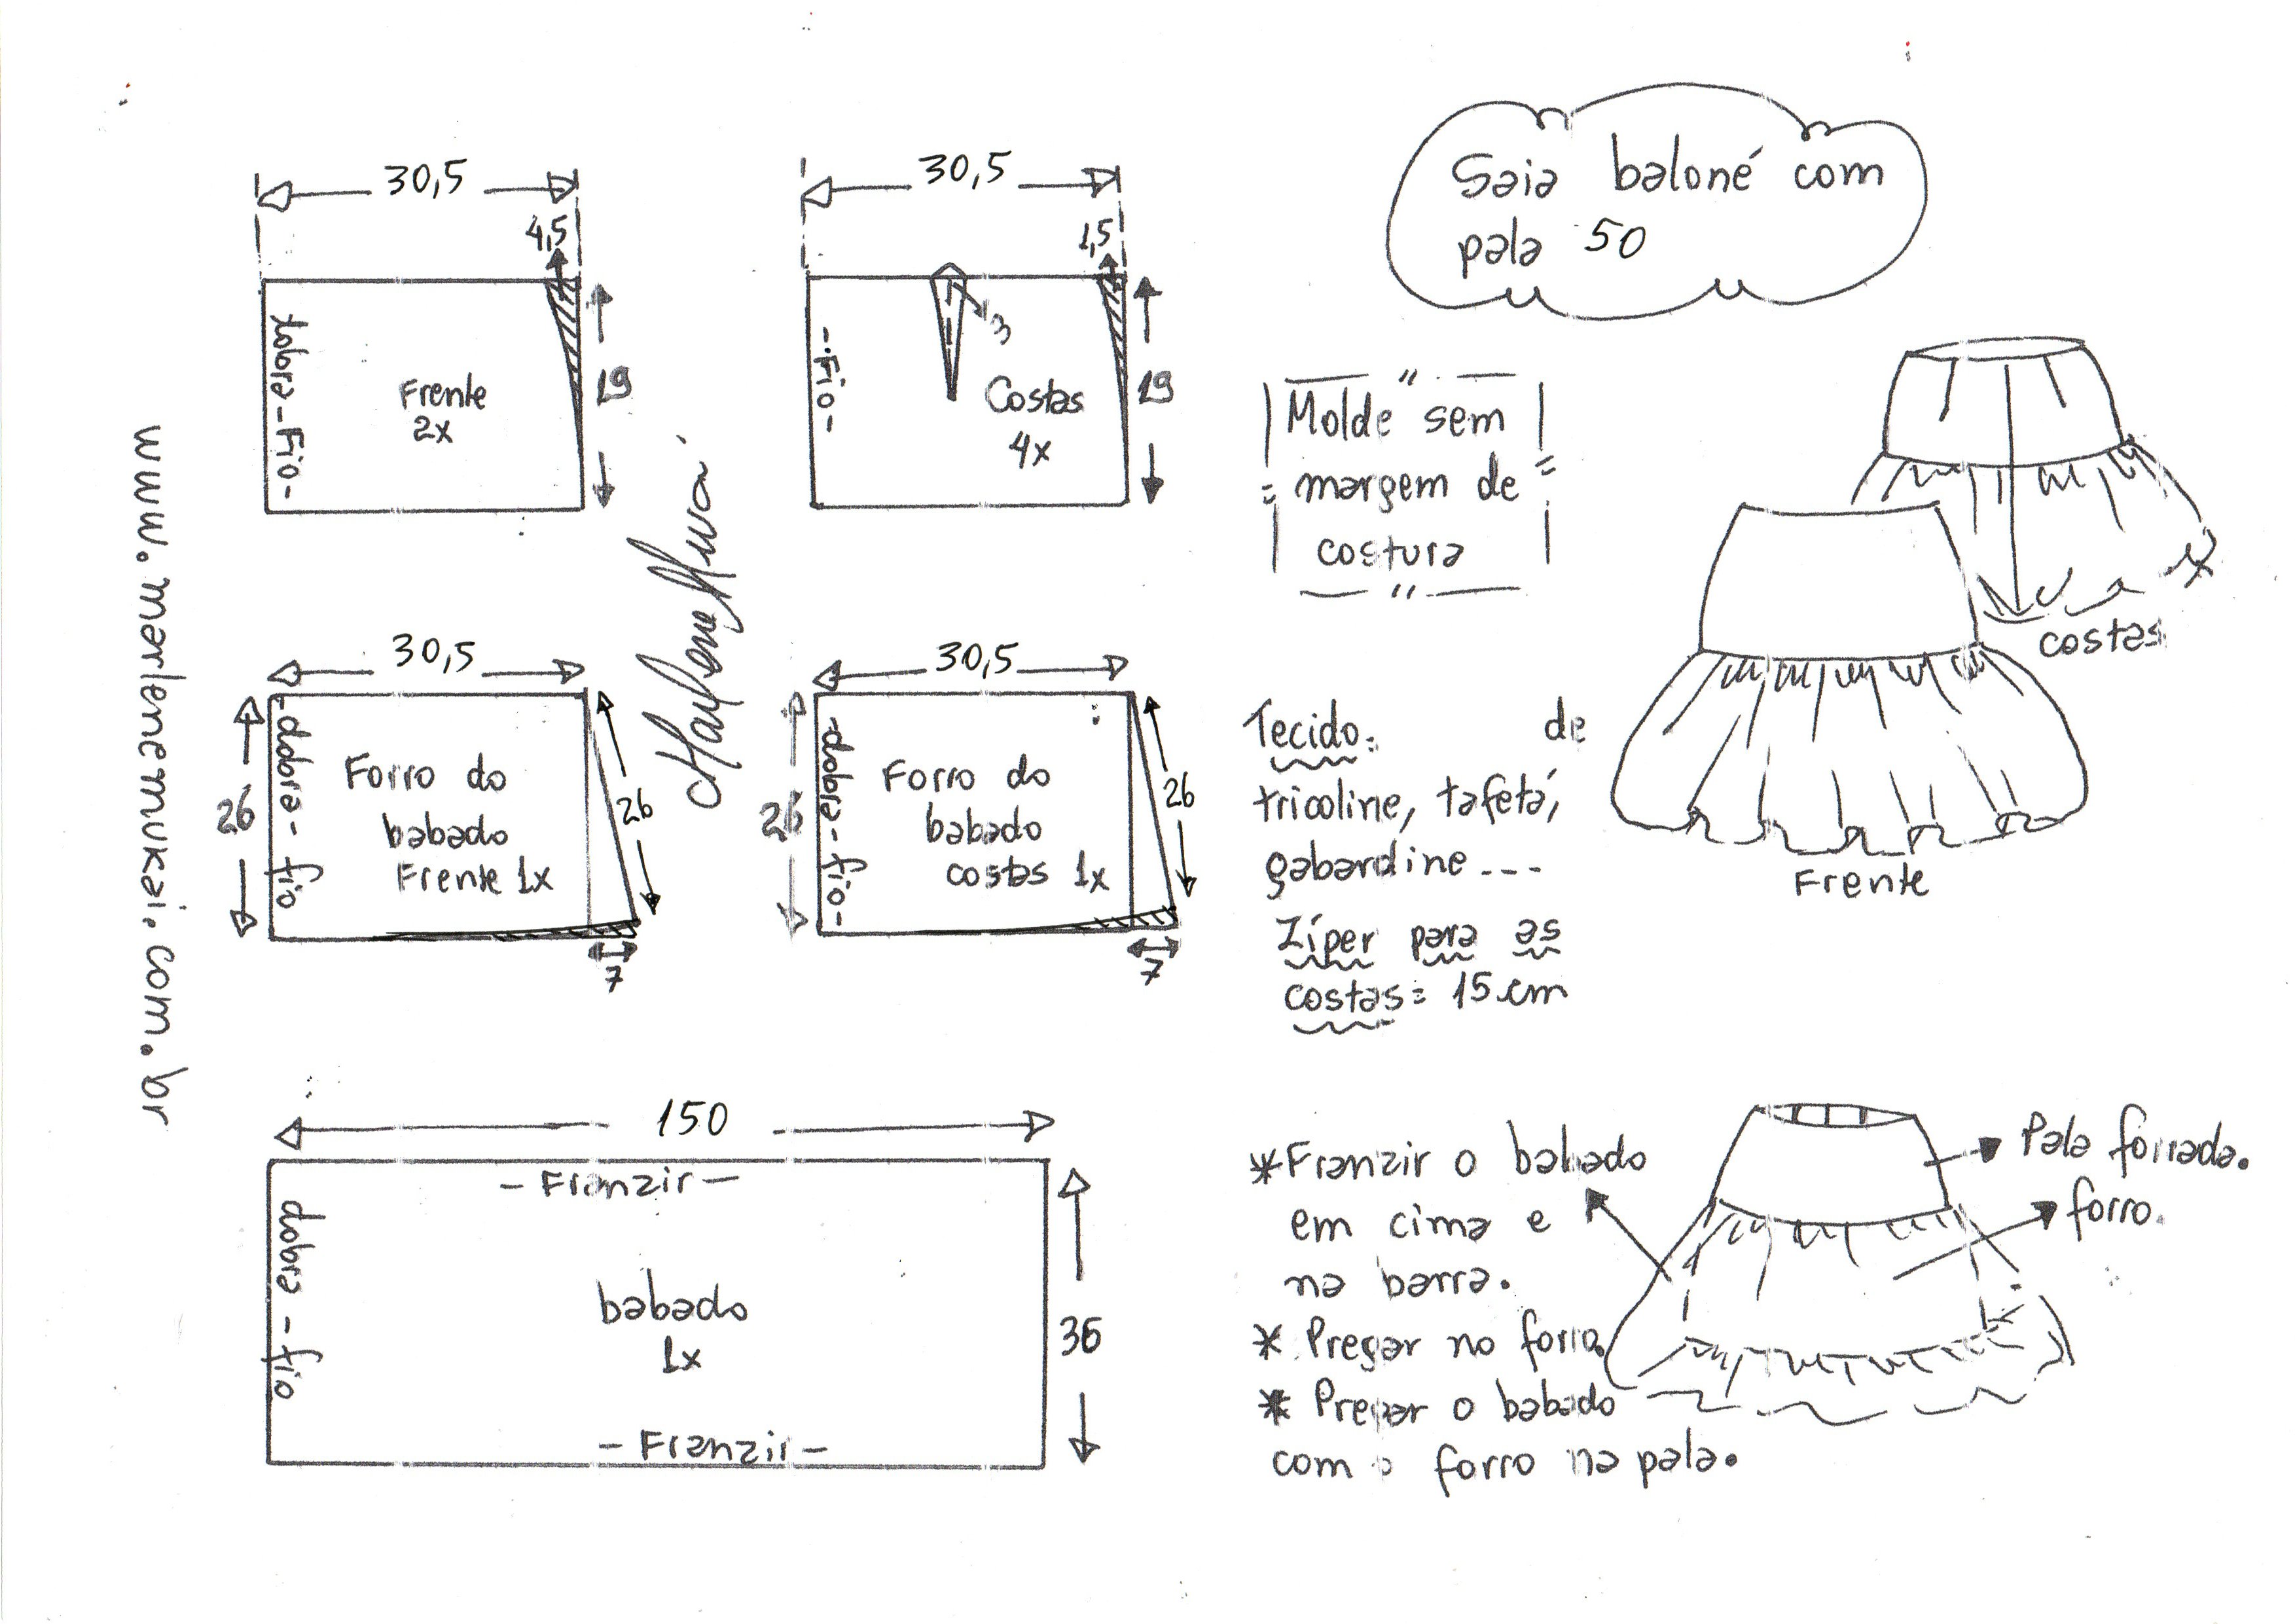 Saia baloné com
pala 50
30,5
4,5
dobra - Fio -
Frente
2x
19
30,5
1,5
- Fio -
3
Costas
4x
19
Molde sem
margem de
costura
costas
Frente
30,5
26
- dobra - fio
Forro do
babado
Frente 1x
26
7
30,5
26
- dobra - fio -
Forro do
babado
costas 1x
26
7
Tecido: de
tricoline, tafetá,
gabardine ---
Zíper para as
costas = 15 cm
www.marlenemukai.com.br
150
- Franzir -
dobra - fio
babado
1x
36
- Franzir -
* Franzir o babado
em cima e
na barra.
* Pregar no forro.
* Pregar o babado
com o forro na pala.
Pala forrada.
forro.